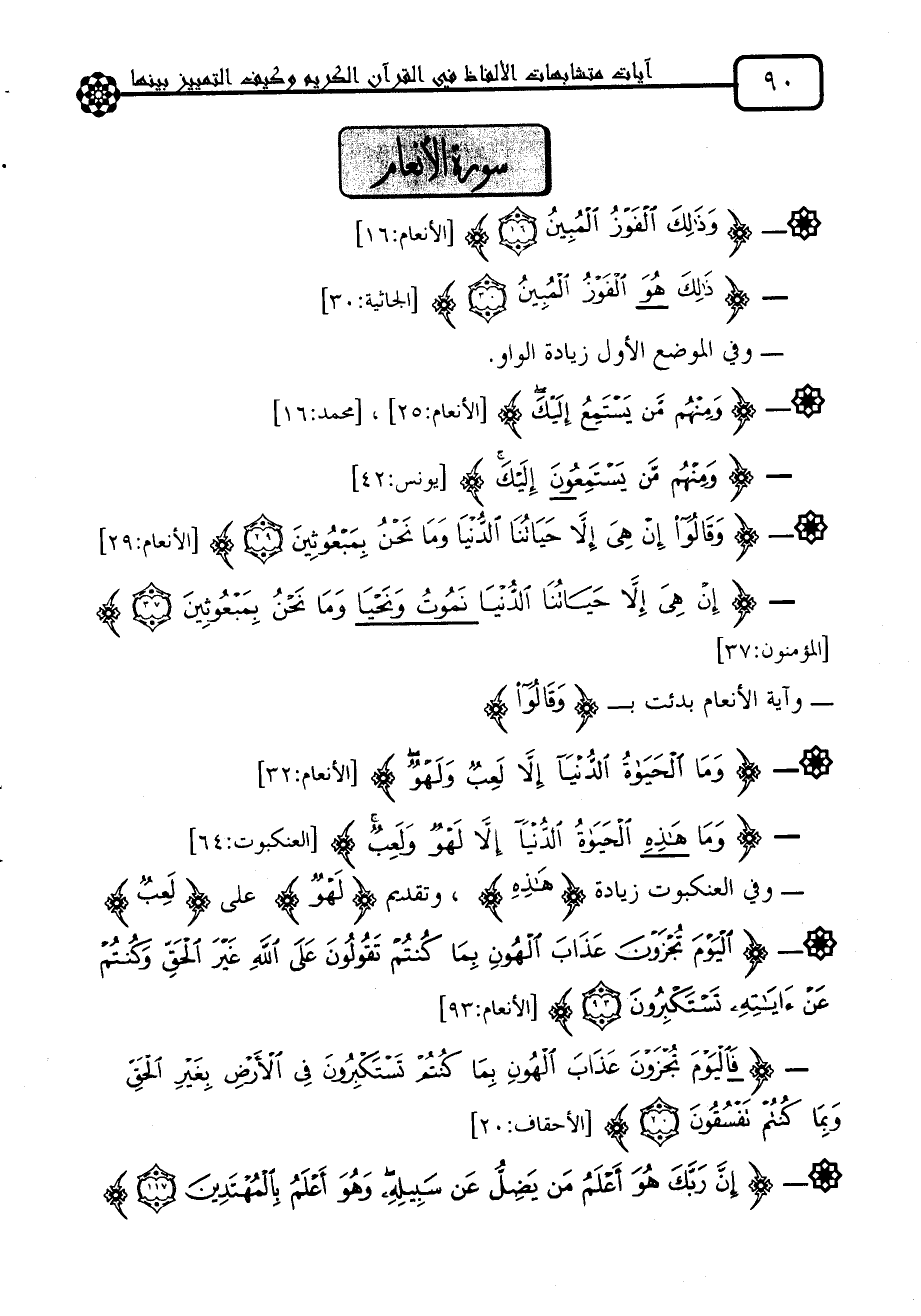 ٩٠
آيات متشابهات الألفاظ في القرآن الكريم وكيف التمييز بينها
سورة الأنعام
ـ ﴿ وَذَٰلِكَ ٱلۡفَوۡزُ ٱلۡمُبِينُ ١٦ ﴾ [الأنعام:١٦]
ـ ﴿ ذَٰلِكَ هُوَ ٱلۡفَوۡزُ ٱلۡمُبِينُ ٣٠ ﴾ [الجاثية:٣٠]
ـ وفي الموضع الأول زيادة الواو.
ـ ﴿ وَمِنۡهُم مَّن يَسۡتَمِعُ إِلَيۡكَۖ ﴾ [الأنعام:٢٥] ، [محمد:١٦]
ـ ﴿ وَمِنۡهُم مَّن يَسۡتَمِعُونَ إِلَيۡكَۚ ﴾ [يونس:٤٢]
ـ ﴿ وَقَالُوٓاْ إِنۡ هِيَ إِلَّا حَيَاتُنَا ٱلدُّنۡيَا وَمَا نَحۡنُ بِمَبۡعُوثِينَ ٢٩ ﴾ [الأنعام:٢٩]
ـ ﴿ إِنۡ هِيَ إِلَّا حَيَاتُنَا ٱلدُّنۡيَا نَمُوتُ وَنَحۡيَا وَمَا نَحۡنُ بِمَبۡعُوثِينَ ٣٧ ﴾
[المؤمنون:٣٧]
ـ وآية الأنعام بدئت بـ ﴿ وَقَالُوٓاْ ﴾
ـ ﴿ وَمَا ٱلۡحَيَوٰةُ ٱلدُّنۡيَآ إِلَّا لَعِبٞ وَلَهۡوٞۖ ﴾ [الأنعام:٣٢]
ـ ﴿ وَمَا هَٰذِهِ ٱلۡحَيَوٰةُ ٱلدُّنۡيَآ إِلَّا لَهۡوٞ وَلَعِبٞۚ ﴾ [العنكبوت:٦٤]
ـ وفي العنكبوت زيادة ﴿ هَٰذِهِ ﴾ ، وتقديم ﴿ لَهۡوٞ ﴾ على ﴿ لَعِبٞ ﴾
ـ ﴿ ٱلۡيَوۡمَ تُجۡزَوۡنَ عَذَابَ ٱلۡهُونِ بِمَا كُنتُمۡ تَقُولُونَ عَلَى ٱللَّهِ غَيۡرَ ٱلۡحَقِّ وَكُنتُمۡ
عَنۡ ءَايَٰتِهِۦ تَسۡتَكۡبِرُونَ ٩٣ ﴾ [الأنعام:٩٣]
ـ ﴿ فَٱلۡيَوۡمَ تُجۡزَوۡنَ عَذَابَ ٱلۡهُونِ بِمَا كُنتُمۡ تَسۡتَكۡبِرُونَ فِي ٱلۡأَرۡضِ بِغَيۡرِ ٱلۡحَقِّ
وَبِمَا كُنتُمۡ تَفۡسُقُونَ ٢٠ ﴾ [الأحقاف:٢٠]
ـ ﴿ إِنَّ رَبَّكَ هُوَ أَعۡلَمُ مَن يَضِلُّ عَن سَبِيلِهِۦۖ وَهُوَ أَعۡلَمُ بِٱلۡمُهۡتَدِينَ ١١٧ ﴾